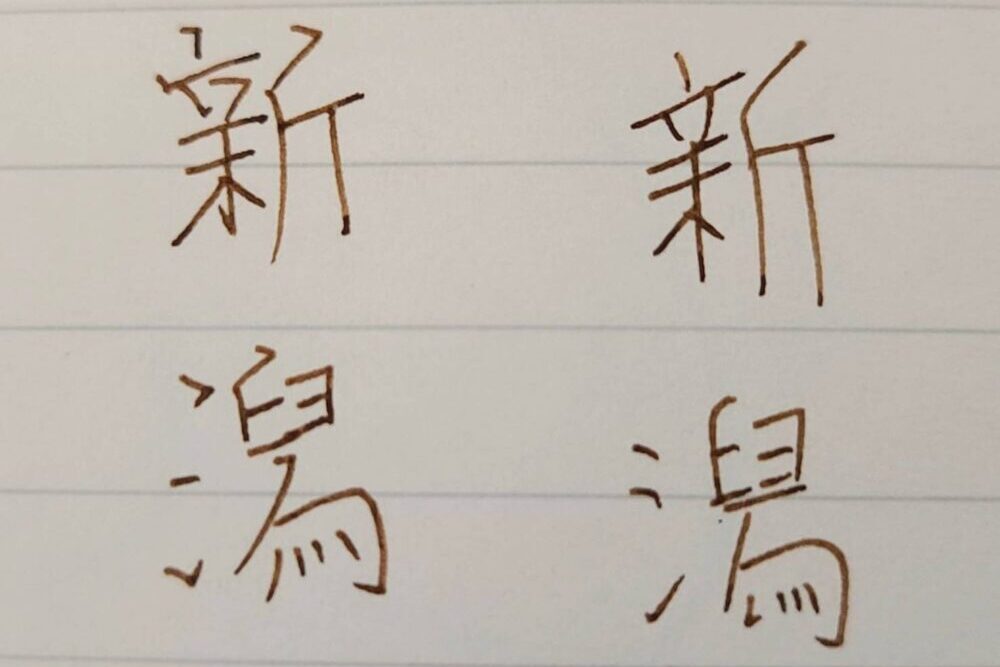 新 新
潟 潟